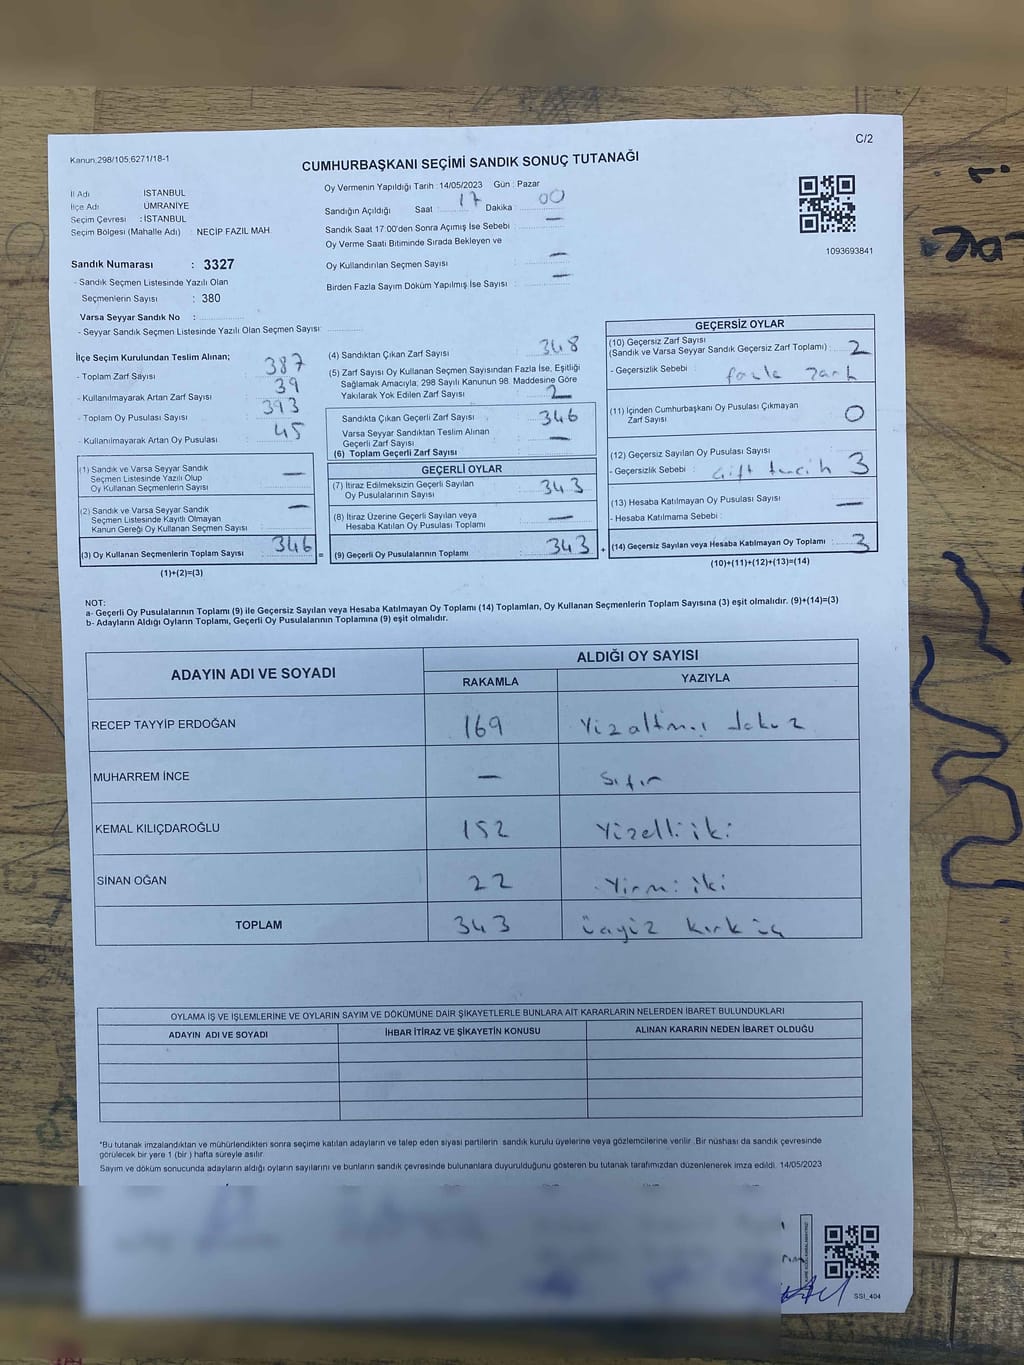 C/2
Kanun:298/105;6271/18-1
CUMHURBAŞKANI SEÇİMİ SANDIK SONUÇ TUTANAĞI
İl Adı İSTANBUL
İlçe Adı ÜMRANİYE
Seçim Çevresi : İSTANBUL
Seçim Bölgesi (Mahalle Adı) : NECİP FAZIL MAH.
Oy Vermenin Yapıldığı Tarih :14/05/2023 Gün : Pazar
Sandığın Açıldığı Saat : 17 Dakika : 00
Sandık Saat 17:00'den Sonra Açımış İse Sebebi : —
Oy Verme Saati Bitiminde Sırada Bekleyen ve
Oy Kullandırılan Seçmen Sayısı : —
Birden Fazla Sayım Döküm Yapılmış İse Sayısı : —
1093693841
Sandık Numarası : 3327
- Sandık Seçmen Listesinde Yazılı Olan
Seçmenlerin Sayısı : 380
Varsa Seyyar Sandık No :
- Seyyar Sandık Seçmen Listesinde Yazılı Olan Seçmen Sayısı:
İlçe Seçim Kurulundan Teslim Alınan;
- Toplam Zarf Sayısı : 387
- Kullanılmayarak Artan Zarf Sayısı : 39
- Toplam Oy Pusulası Sayısı : 393
- Kullanılmayarak Artan Oy Pusulası : 45
(1) Sandık ve Varsa Seyyar Sandık
Seçmen Listesinde Yazılı Olup
Oy Kullanan Seçmenlerin Sayısı —
(2) Sandık ve Varsa Seyyar Sandık
Seçmen Listesinde Kayıtlı Olmayan
Kanun Gereği Oy Kullanan Seçmen Sayısı —
(3) Oy Kullanan Seçmenlerin Toplam Sayısı : 346 =
(1)+(2)=(3)
(4) Sandıktan Çıkan Zarf Sayısı : 348
(5) Zarf Sayısı Oy Kullanan Seçmen Sayısından Fazla İse, Eşitliği
Sağlamak Amacıyla; 298 Sayılı Kanunun 98. Maddesine Göre
Yakılarak Yok Edilen Zarf Sayısı : 2
Sandıkta Çıkan Geçerli Zarf Sayısı : 346
Varsa Seyyar Sandıktan Teslim Alınan
Geçerli Zarf Sayısı : —
(6) Toplam Geçerli Zarf Sayısı
GEÇERLİ OYLAR
(7) İtiraz Edilmeksizin Geçerli Sayılan
Oy Pusulalarının Sayısı : 343
(8) İtiraz Üzerine Geçerli Sayılan veya
Hesaba Katılan Oy Pusulası Toplamı : —
(9) Geçerli Oy Pusulalarının Toplamı : 343 +
GEÇERSİZ OYLAR
(10) Geçersiz Zarf Sayısı
(Sandık ve Varsa Seyyar Sandık Geçersiz Zarf Toplamı) : 2
- Geçersizlik Sebebi : fazla zarf
(11) İçinden Cumhurbaşkanı Oy Pusulası Çıkmayan
Zarf Sayısı : 0
(12) Geçersiz Sayılan Oy Pusulası Sayısı : 3
- Geçersizlik Sebebi : Çift tercih
(13) Hesaba Katılmayan Oy Pusulası Sayısı : —
- Hesaba Katılmama Sebebi :
(14) Geçersiz Sayılan veya Hesaba Katılmayan Oy Toplamı : 3
(10)+(11)+(12)+(13)=(14)
NOT:
a- Geçerli Oy Pusulalarının Toplamı (9) ile Geçersiz Sayılan veya Hesaba Katılmayan Oy Toplamı (14) Toplamları, Oy Kullanan Seçmenlerin Toplam Sayısına (3) eşit olmalıdır. (9)+(14)=(3)
b- Adayların Aldığı Oyların Toplamı, Geçerli Oy Pusulalarının Toplamına (9) eşit olmalıdır.
ADAYIN ADI VE SOYADI ALDIĞI OY SAYISI
RAKAMLA YAZIYLA
RECEP TAYYİP ERDOĞAN 169 Yüzaltmış dokuz
MUHARREM İNCE — Sıfır
KEMAL KILIÇDAROĞLU 152 Yüzelli iki
SİNAN OĞAN 22 Yirmi iki
TOPLAM 343 üçyüz kırk üç
OYLAMA İŞ VE İŞLEMLERİNE VE OYLARIN SAYIM VE DÖKÜMÜNE DAİR ŞİKAYETLERLE BUNLARA AİT KARARLARIN NELERDEN İBARET BULUNDUKLARI
ADAYIN ADI VE SOYADI İHBAR İTİRAZ VE ŞİKAYETİN KONUSU ALINAN KARARIN NEDEN İBARET OLDUĞU
*Bu tutanak imzalandıktan ve mühürlendikten sonra seçime katılan adayların ve talep eden siyasi partilerin sandık kurulu üyelerine veya gözlemcilerine verilir .Bir nüshası da sandık çevresinde
görülecek bir yere 1 (bir ) hafta süreyle asılır.
Sayım ve döküm sonucunda adayların aldığı oyların sayılarını ve bunların sandık çevresinde bulunanlara duyurulduğunu gösteren bu tutanak tarafımızdan düzenlenerek imza edildi. 14/05/2023
SSI_404